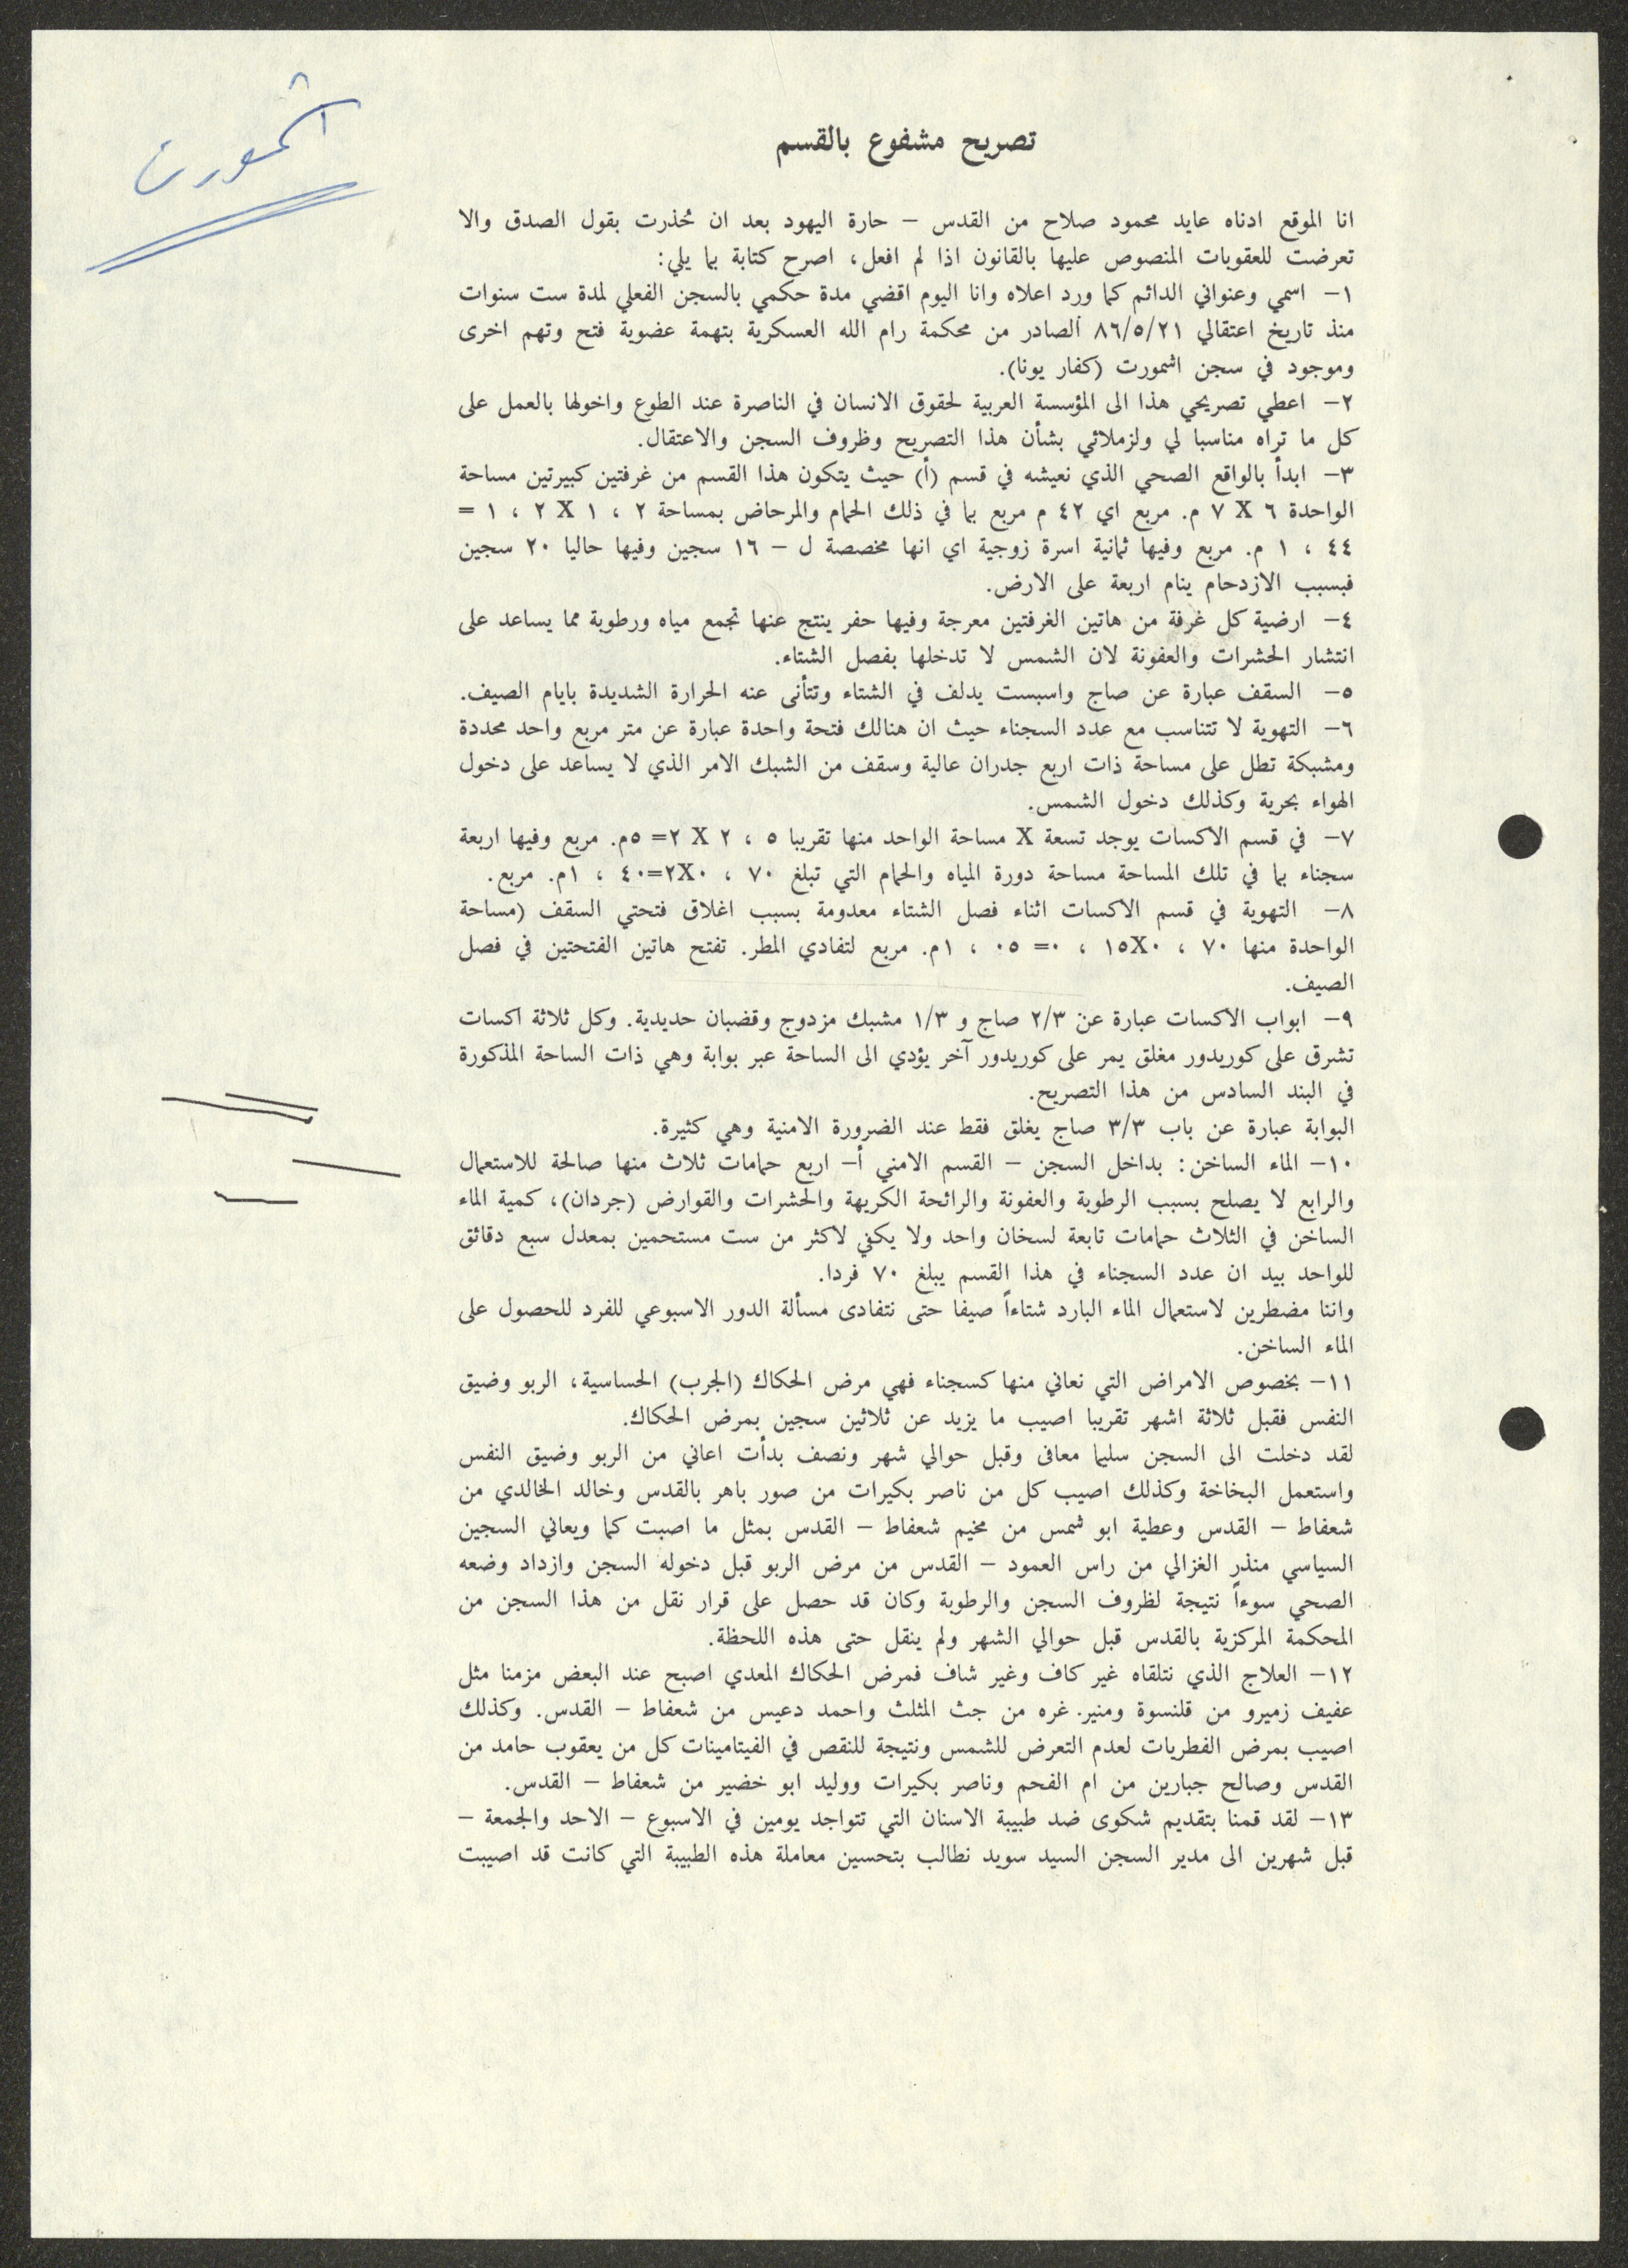 اشمورت
تصريح مشفوع بالقسم
انا الموقع ادناه عايد محمود صلاح من القدس – حارة اليهود بعد ان حُذرت بقول الصدق والا
تعرضت للعقوبات المنصوص عليها بالقانون اذا لم افعل، اصرح كتابة بما يلي:
١– اسمي وعنواني الدائم كما ورد اعلاه وانا اليوم اقضي مدة حكمي بالسجن الفعلي لمدة ست سنوات
منذ تاريخ اعتقالي ٨٦/٥/٢١ الصادر من محكمة رام الله العسكرية بتهمة عضوية فتح وتهم اخرى
وموجود في سجن اشمورت (كفار يونا).
٢– اعطي تصريحي هذا الى المؤسسة العربية لحقوق الانسان في الناصرة عند الطوع واخولها بالعمل على
كل ما تراه مناسبا لي ولزملائي بشأن هذا التصريح وظروف السجن والاعتقال.
٣– ابدأ بالواقع الصحي الذي نعيشه في قسم (أ) حيث يتكون هذا القسم من غرفتين كبيرتين مساحة
الواحدة ٦ X ٧ م. مربع اي ٤٢ م مربع بما في ذلك الحمام والمرحاض بمساحة ٢ ، ١ X ٢ ، ١ =
٤٤ ، ١ م. مربع وفيها ثمانية اسرة زوجية اي انها مخصصة ل – ١٦ سجين وفيها حاليا ٢٠ سجين
فبسبب الازدحام ينام اربعة على الارض.
٤– ارضية كل غرفة من هاتين الغرفتين معرجة وفيها حفر ينتج عنها تجمع مياه ورطوبة مما يساعد على
انتشار الحشرات والعفونة لان الشمس لا تدخلها بفصل الشتاء.
٥– السقف عبارة عن صاج واسبست يدلف في الشتاء وتتأنى عنه الحرارة الشديدة بايام الصيف.
٦– التهوية لا تتناسب مع عدد السجناء حيث ان هنالك فتحة واحدة عبارة عن متر مربع واحد محددة
ومشبكة تطل على مساحة ذات اربع جدران عالية وسقف من الشبك الامر الذي لا يساعد على دخول
الهواء بحرية وكذلك دخول الشمس.
٧– في قسم الاكسات يوجد تسعة X مساحة الواحد منها تقريبا ٥ ، ٢ X ٢= ٥م. مربع وفيها اربعة
سجناء بما في تلك المساحة مساحة دورة المياه والحمام التي تبلغ ٧٠ ، ٠X٢=٤٠ ، ١م. مربع.
٨– التهوية في قسم الاكسات اثناء فصل الشتاء معدومة بسبب اغلاق فتحتي السقف (مساحة
الواحدة منها ٧٠ ، ٠X١٥ ، ٠= ٠٥ ، ١م. مربع لتفادي المطر. تفتح هاتين الفتحتين في فصل
الصيف.
٩– ابواب الاكسات عبارة عن ٢/٣ صاج و ١/٣ مشبك مزدوج وقضبان حديدية. وكل ثلاثة اكسات
تشرق على كوريدور مغلق يمر على كوريدور آخر يؤدي الى الساحة عبر بوابة وهي ذات الساحة المذكورة
في البند السادس من هذا التصريح.
البوابة عبارة عن باب ٣/٣ صاج يغلق فقط عند الضرورة الامنية وهي كثيرة.
١٠– الماء الساخن: بداخل السجن – القسم الامني أ– اربع حمامات ثلاث منها صالحة للاستعمال
والرابع لا يصلح بسبب الرطوبة والعفونة والرائحة الكريهة والحشرات والقوارض (جردان)، كمية الماء
الساخن في الثلاث حمامات تابعة لسخان واحد ولا يكفي لاكثر من ست مستحمين بمعدل سبع دقائق
للواحد بيد ان عدد السجناء في هذا القسم يبلغ ٧٠ فردا.
واننا مضطرين لاستعمال الماء البارد شتاءاً صيفا حتى نتفادى مسألة الدور الاسبوعي للفرد للحصول على
الماء الساخن.
١١– بخصوص الامراض التي نعاني منها كسجناء فهي مرض الحكاك (الجرب) الحساسية، الربو وضيق
النفس فقبل ثلاثة اشهر تقريبا اصيب ما يزيد عن ثلاثين سجين بمرض الحكاك.
لقد دخلت الى السجن سليما معافى وقبل حوالي شهر ونصف بدأت اعاني من الربو وضيق النفس
واستعمل البخاخة وكذلك اصيب كل من ناصر بكيرات من صور باهر بالقدس وخالد الخالدي من
شعفاط – القدس وعطية ابو شمس من مخيم شعفاط – القدس بمثل ما اصبت كما ويعاني السجين
السياسي منذر الغزالي من راس العمود – القدس من مرض الربو قبل دخوله السجن وازداد وضعه
الصحي سوءاً نتيجة لظروف السجن والرطوبة وكان قد حصل على قرار نقل من هذا السجن من
المحكمة المركزية بالقدس قبل حوالي الشهر ولم ينقل حتى هذه اللحظة.
١٢– العلاج الذي نتلقاه غير كاف وغير شاف فمرض الحكاك المعدي اصبح عند البعض مزمنا مثل
عفيف زميرو من قلنسوة ومنير. غره من جث المثلث واحمد دعيس من شعفاط – القدس. وكذلك
اصيب بمرض الفطريات لعدم التعرض للشمس ونتيجة للنقص في الفيتامينات كل من يعقوب حامد من
القدس وصالح جبارين من ام الفحم وناصر بكيرات ووليد ابو خضير من شعفاط – القدس.
١٣– لقد قمنا بتقديم شكوى ضد طبيبة الاسنان التي تتواجد يومين في الاسبوع – الاحد والجمعة –
قبل شهرين الى مدير السجن السيد سويد نطالب بتحسين معاملة هذه الطبيبة التي كانت قد اصيبت